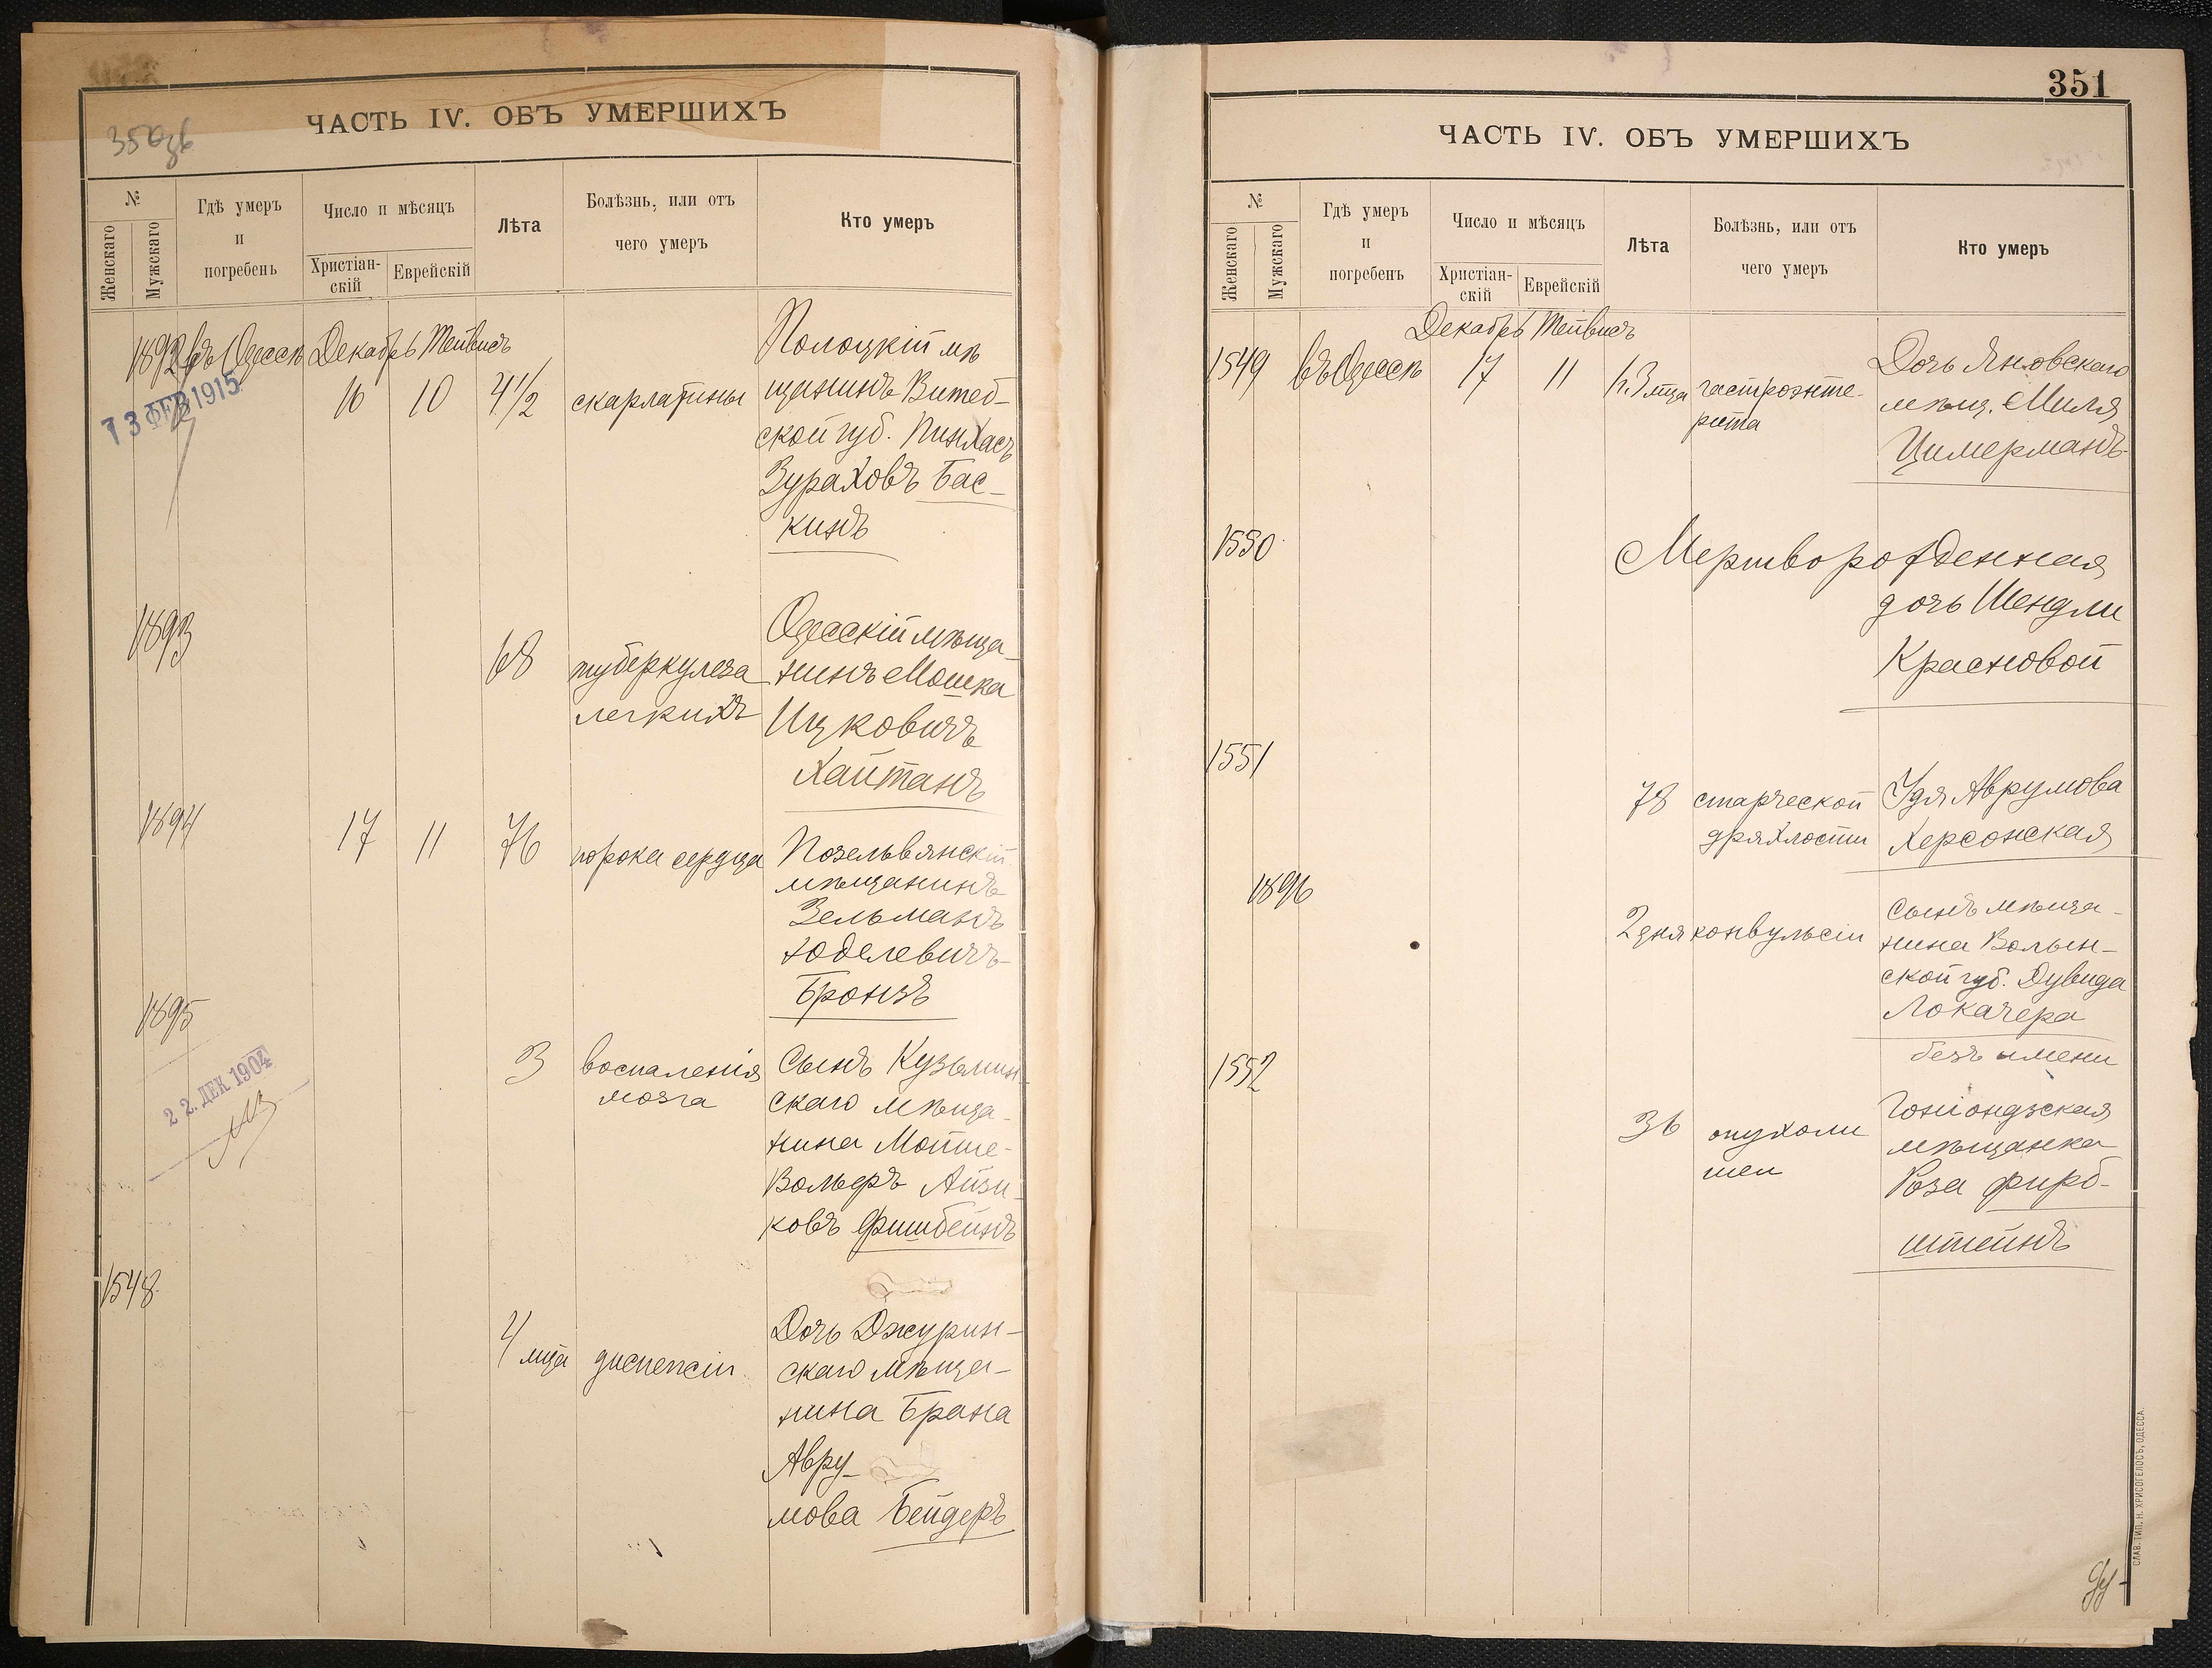 ЧАСТЬ IV. ОБЪ УМЕРШИХЪ
№
Женскаго
Мужскаго
Гдѣ умеръ
и
погребенъ
Число и мѣсяцъ
Христіан-
скій
Еврейскій
Лѣта
Болѣзнь, или отъ
чего умеръ
Кто умеръ
1892 въ Одессѣ Декабрь Тейвисъ
16 10 4 1/2 скарлатины
Полоцкій мѣ
щанинъ Витеб-
ской губ. Пинхасъ
Зураховъ Бас-
кинъ
13 ФЕВ 1915
1893
68 туберкулеза
легкихъ
Одесскій мѣща-
нинъ Мошка
Ицковичъ
Хайтанъ
1894 17 11 76 порока сердца
Позельвянскій
мѣщанинъ
Зельманъ
Юделевичъ
Бронзъ
1895
3 воспаленія
мозга
Сынъ Кузьмин-
скаго мѣща-
нина Мойше-
Вольфъ Айзи-
ковъ Фишбейнъ
22. ДЕК 1904
1548
4 мца диспепсіи
Дочь Джурин-
скаго мѣща-
нина Брана
Авру-
мова Бейдеръ
351
ЧАСТЬ IV. ОБЪ УМЕРШИХЪ
№
Женскаго
Мужскаго
Гдѣ умеръ
и
погребенъ
Число и мѣсяцъ
Христіан-
скій
Еврейскій
Лѣта
Болѣзнь, или отъ
чего умеръ
Кто умеръ
Декабрь Тейвисъ
1549 въ Одессѣ 17 11 1г. 3 мца гастроэнте-
рита
Дочь Яновскаго
мѣщ. Миля
Цимерманъ
1550
Мертворожденная
дочь Шендли
Красновой
1551
78 старческой
дряхлости
Удя Аврумова
Херсонская
1896
2 дня конвульсіи
Сынъ мѣща-
нина Волын-
ской губ. Дувида
Локачера
безъ имени
1552
36 опухоли
шеи
Гоніондзская
мѣщанка
Роза Фирб-
штейнъ
СЛАВ. ТИП. Н. ХРИСОГЕЛОСЪ, ОДЕССА.